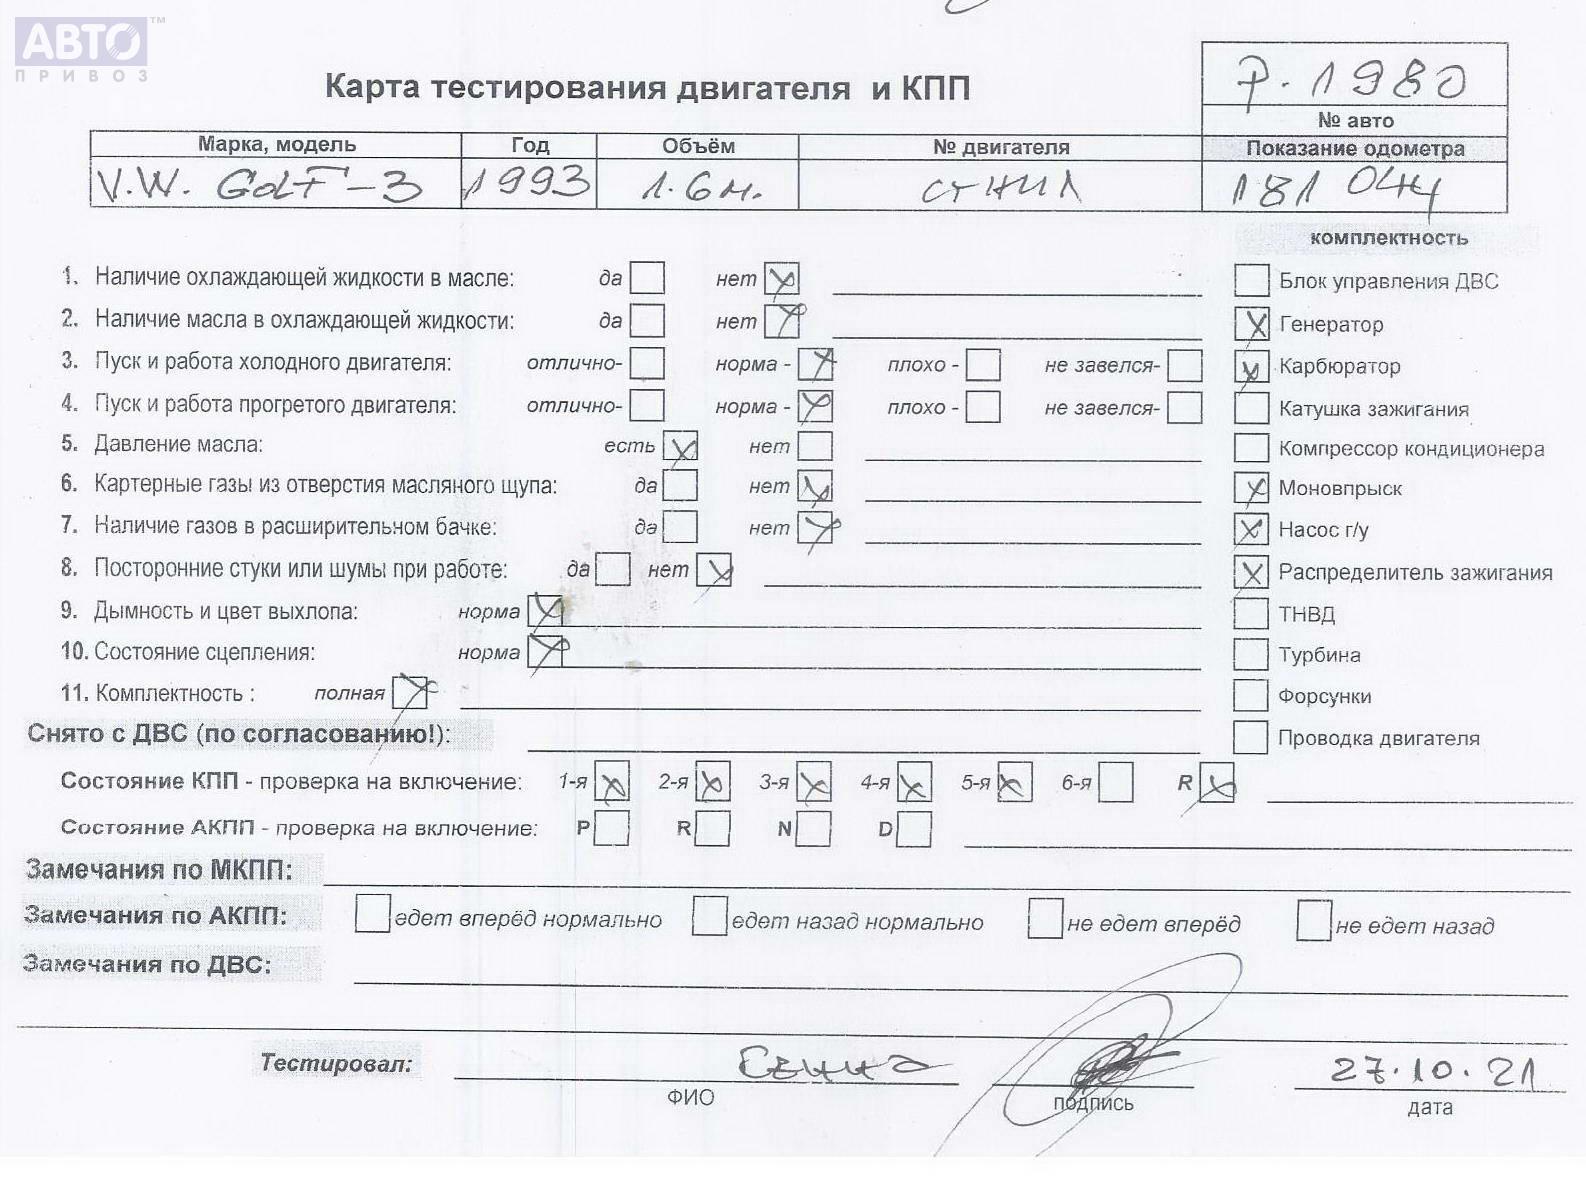 АВТО ™
ПРИВОЗ
Карта тестирования двигателя и КПП
Р. 1980
№ авто
Марка, модель Год Объём № двигателя Показание одометра
V.W. Golf-3 1993 1.6м. сгнил 181 044
комплектность
1. Наличие охлаждающей жидкости в масле: да нет Блок управления ДВС
2. Наличие масла в охлаждающей жидкости: да нет Генератор
3. Пуск и работа холодного двигателя: отлично- норма - плохо - не завелся- Карбюратор
4. Пуск и работа прогретого двигателя: отлично- норма - плохо - не завелся- Катушка зажигания
5. Давление масла: есть нет Компрессор кондиционера
6. Картерные газы из отверстия масляного щупа: да нет Моновпрыск
7. Наличие газов в расширительном бачке: да нет Насос г/у
8. Посторонние стуки или шумы при работе: да нет Распределитель зажигания
9. Дымность и цвет выхлопа: норма ТНВД
10. Состояние сцепления: норма Турбина
11. Комплектность : полная Форсунки
Снято с ДВС (по согласованию!): Проводка двигателя
Состояние КПП - проверка на включение: 1-я 2-я 3-я 4-я 5-я 6-я R
Состояние АКПП - проверка на включение: P R N D
Замечания по МКПП:
Замечания по АКПП: едет вперёд нормально едет назад нормально не едет вперёд не едет назад
Замечания по ДВС:
Тестировал: 27.10.21
ФИО подпись дата